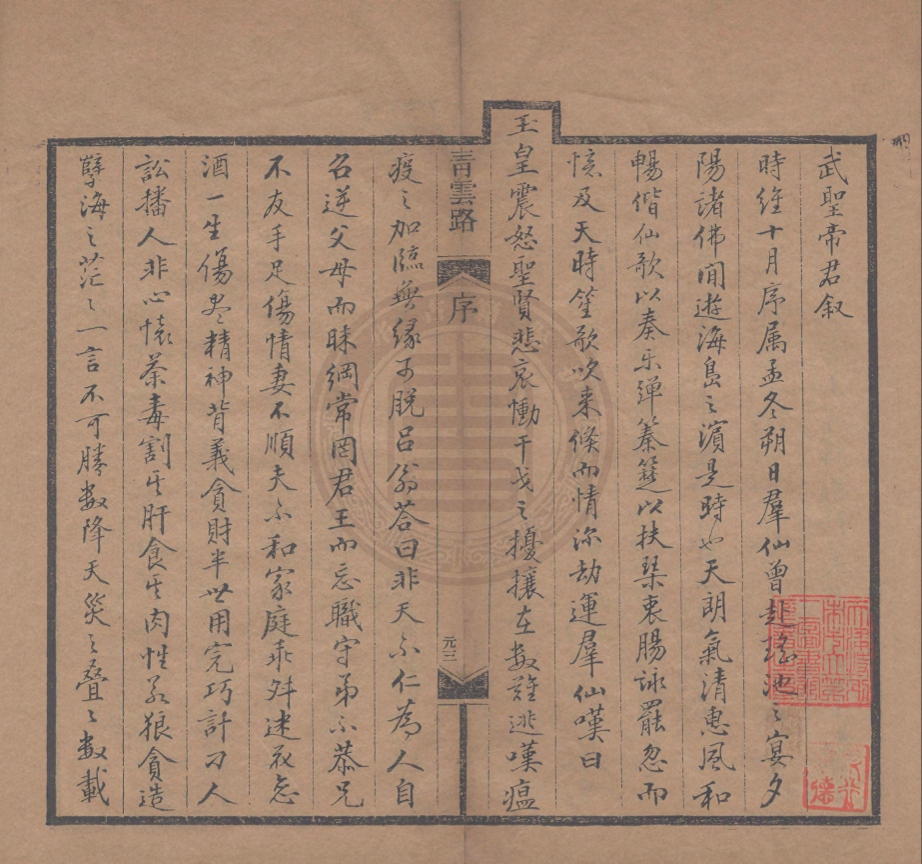 武聖帝君叙
時維十月序属孟冬朔日羣仙曽赴瑤池之宴夕
陽諸佛閒遊海島之濵是時也天朗氣清惠風和
暢偕仙歌以奏乐弹蓁筵以扶琹衷腸詠罷忽而
憶及天時笙歌吹来倏而情深劫運羣仙嘆曰
玉皇震怒聖賢悲哀慟干戈之擾攘在数難逃嘆瘟
青雲路
序
元三
疫之加臨無緣可脱吕翁荅曰非天不仁為人自
名逆父母而昧綱常罔君王而忘職守弟不恭兄
不友手足傷情妻不順夫不和家庭乖舛迷花恋
酒一生傷尽精神背義貪財半世用完巧計刁人
訟播人非心懐荼毒割生肝食生肉性若狼貪造
孽海之茫之一言不可勝数降天災之叠之数載